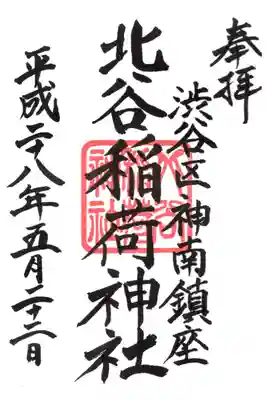 奉拝
渋谷区神南鎮座
北谷稲荷神社
平成二十八年五月二十二日